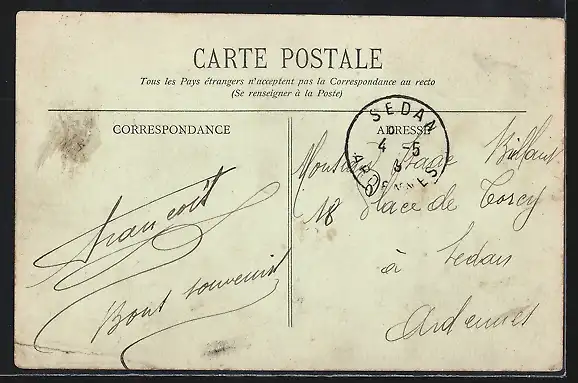 CARTE POSTALE
Tous les Pays étrangers n'acceptent pas la Correspondance au recto
(Se renseigner à la Poste)
CORRESPONDANCE
ADRESSE
SEDAN
4 -5
ARDENNES
Monsieur
18 Place de Torcy
à Sedan
Ardennes
Bons souvenirs